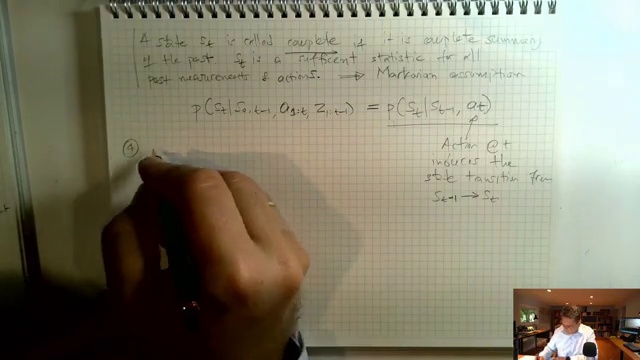 A state St is called complete if it is complete summary
of the past St is a sufficient statistic for all
past measurements & actions. ⟹ Markovian assumption
p(St|S0:t-1, a1:t, z1:t-1) = p(St|St-1, at)
Action @ t
induces the
state transition from
St-1 → St
④